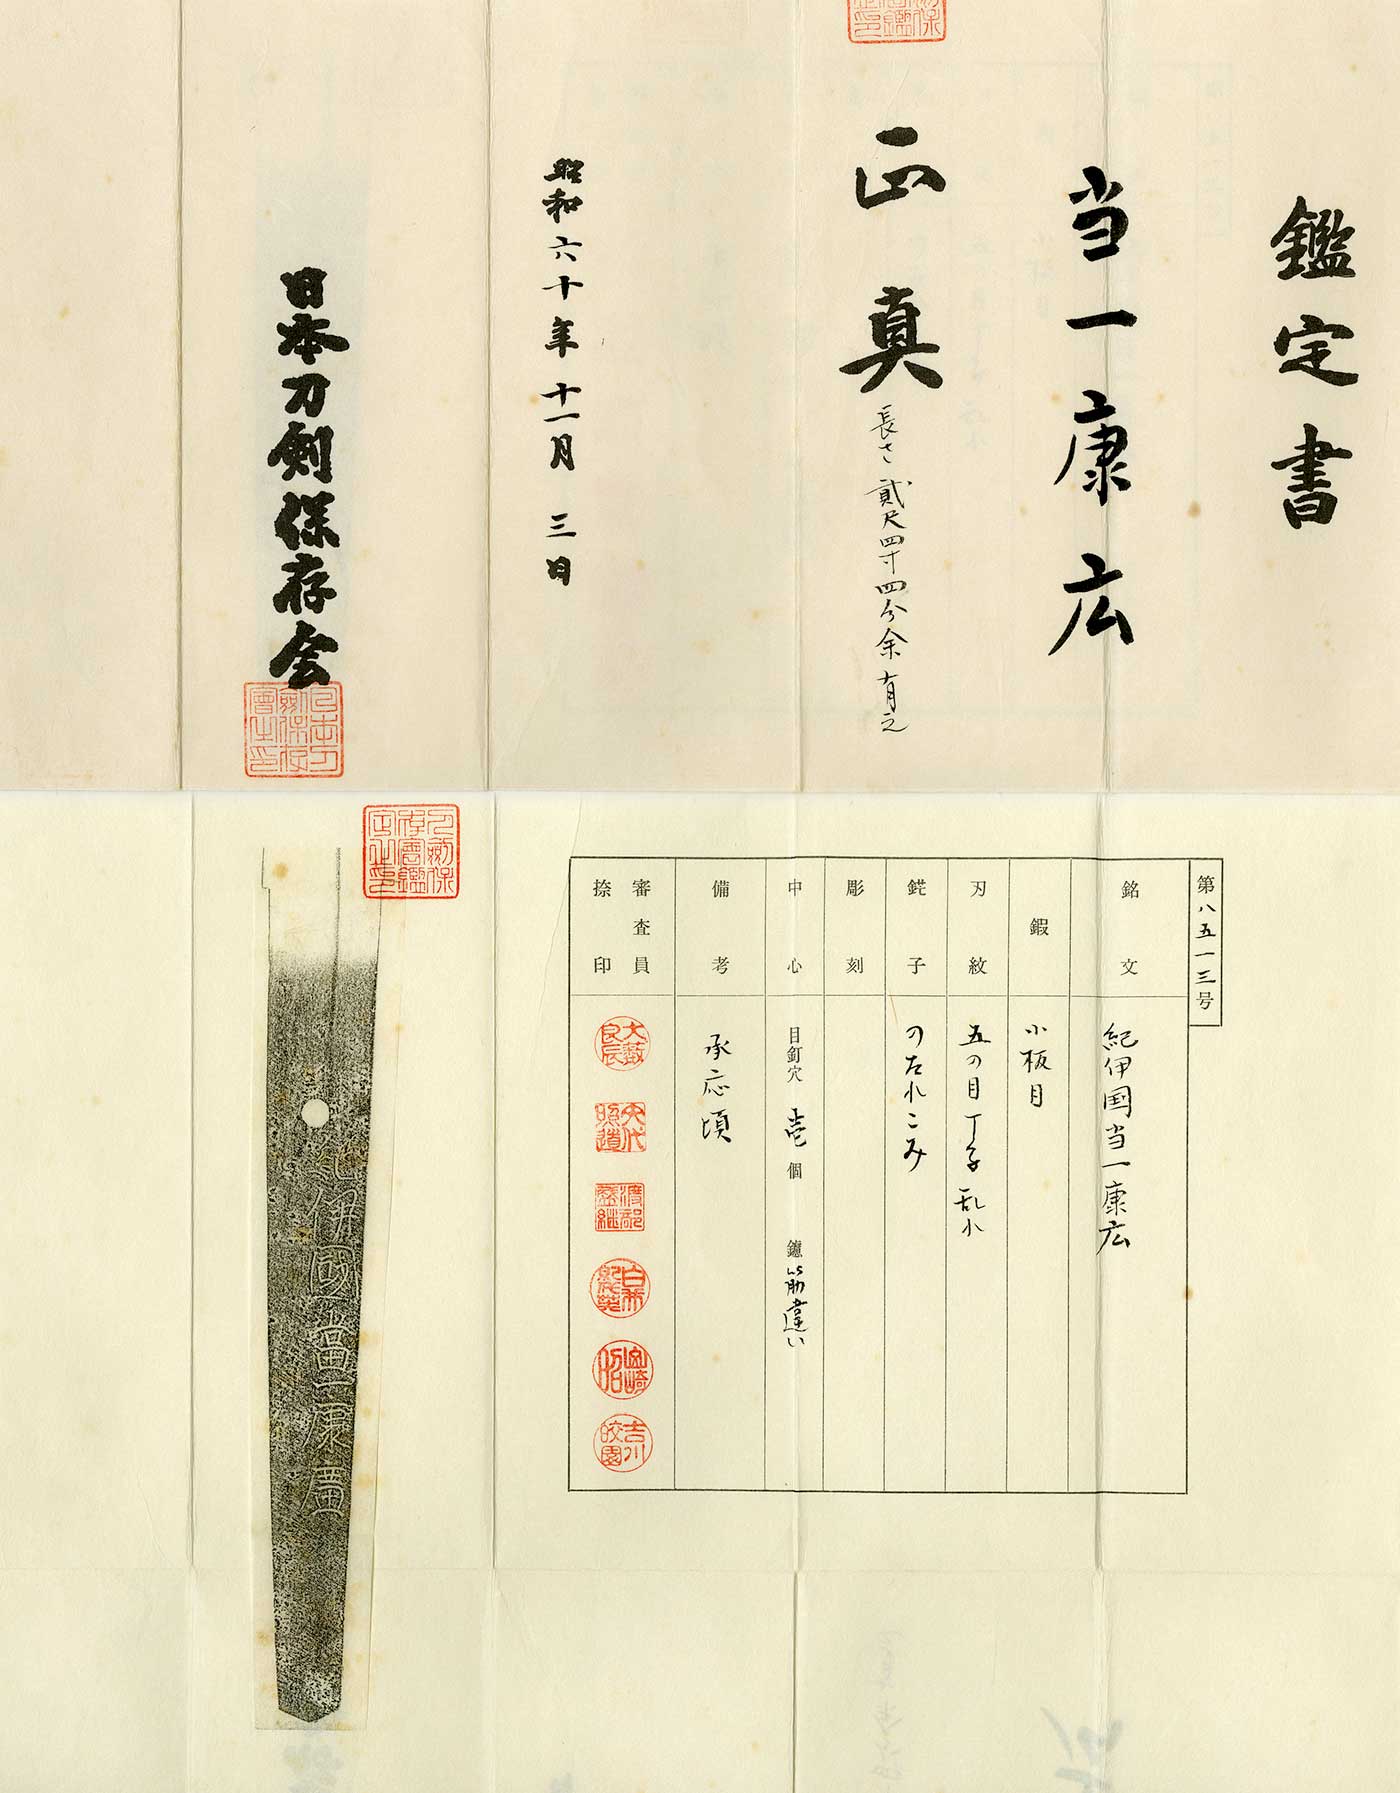 鑑定書
当一康広
正真
長さ貳尺四寸四分余有之
昭和六十年十一月三日
日本刀剣保存会
第八五一三号
銘文
紀伊国当一康広
鍜
小板目
刃紋
五の目丁子乱れ
鋩子
のたれこみ
彫刻
中心
目釘穴 壱個 鑢 筋違い
備考
承応頃
審査員
捺印
吉川皎園
紀伊國當一康廣